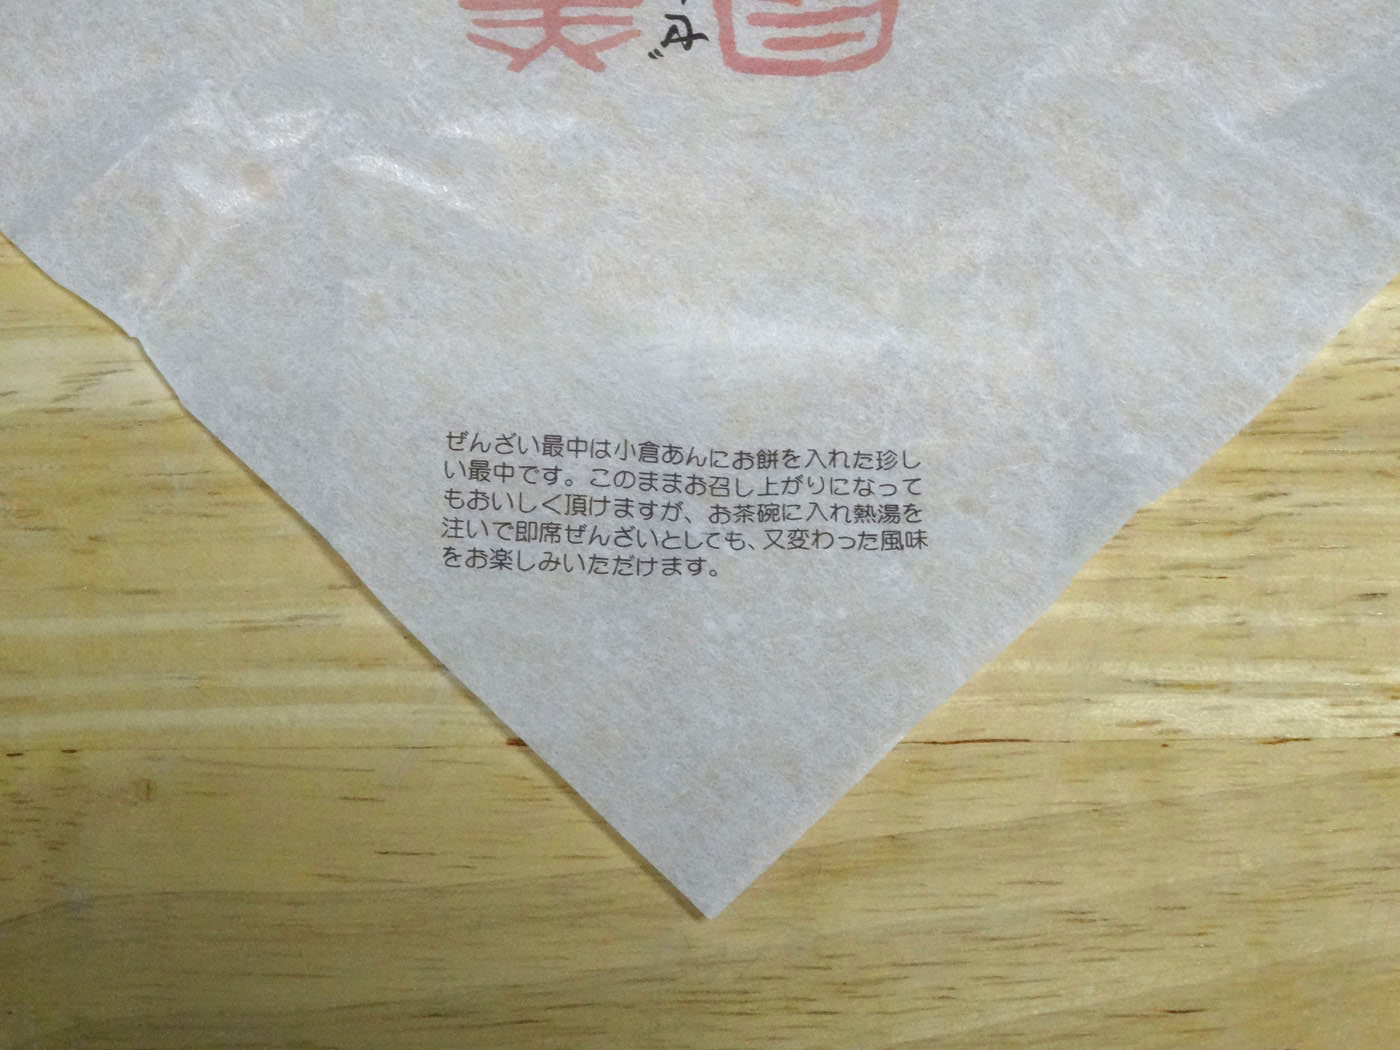 ぜんざい最中は小倉あんにお餅を入れた珍し
い最中です。このままお召し上がりになって
もおいしく頂けますが、お茶碗に入れ熱湯を
注いで即席ぜんざいとしても、又変わった風味
をお楽しみいただけます。